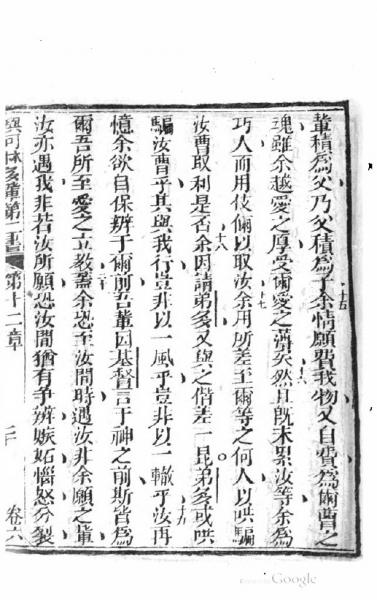 輩積為父乃父積為子余情願費我物又自費為爾曹之
魂雖余越愛之厚受爾愛之薄矣然且既未累汝等余為
巧人而用伎倆以取汝余用所差至爾等之何人以哄騙
汝曹取利是否余因請弟多又與之偕差一昆弟多或哄
騙汝曹乎其與我行豈非以一風乎豈非以一轍乎汝再
憶余欲自保辨于爾前吾輩因基督言于神之前斯皆為
爾吾所至愛之立教蓋余恐至汝間時遇汝非余願之輩
汝亦遇我非若汝所願恐汝間猶有爭辨嫉妬惱怒分製
與可林多輩第二書 第十二章 卷六
十五
十六
十七
十八
十九
Google